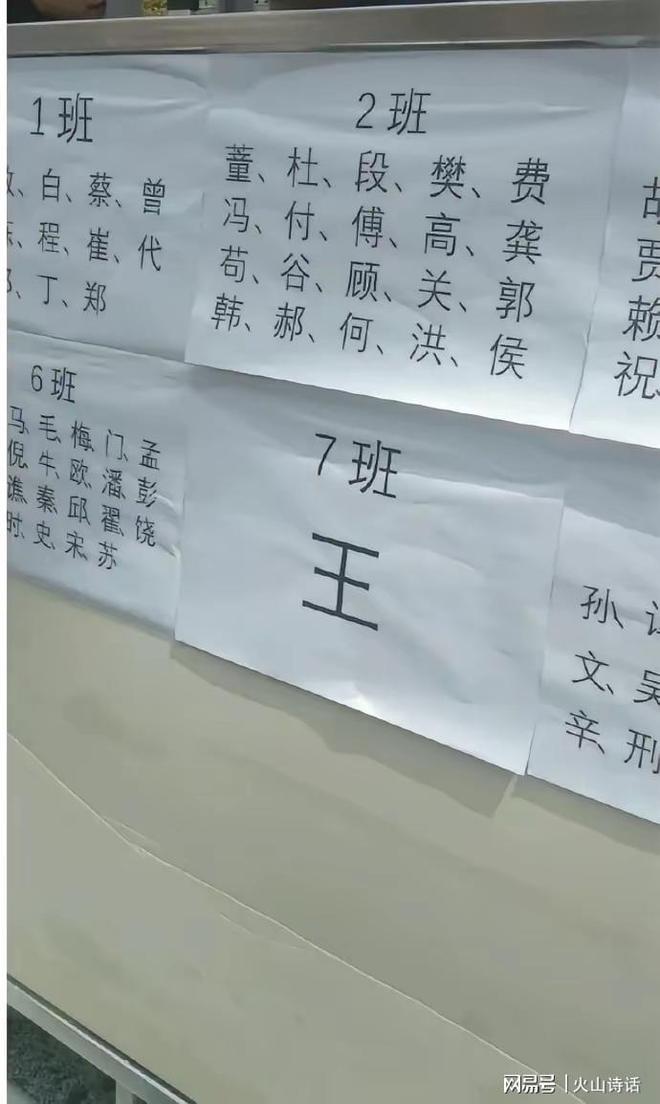 1班
、白、蔡、曾
、程、崔、代
、丁、郑
2班
董、杜、段、樊、费
冯、付、傅、高、龚
苟、谷、顾、关、郭
韩、郝、何、洪、侯
贾
赖
祝
6班
马、毛、梅、门、孟
倪、牛、欧、潘、彭
谯、秦、邱、翟、饶
时、史、宋、苏
7班
王
孙、
文、吴
辛、刑
网易号 | 火山诗话